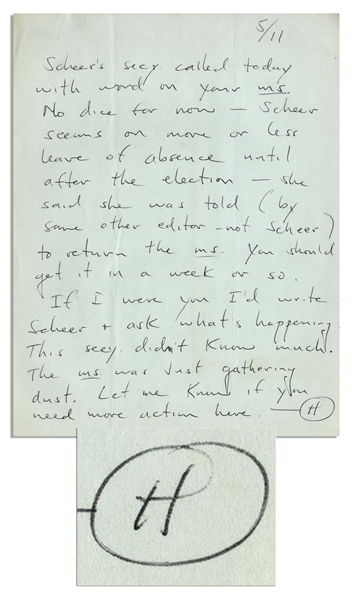 5/11
Scheer's secy. called today
with word on your ms.
No dice for now — Scheer
seems on more or less
leave of absence until
after the election — she
said she was told (by
some other editor - not Scheer)
to return the ms. You should
get it in a week or so.
If I were you I'd write
Scheer + ask what's happening.
This secy. didn't know much.
The ms. was just gathering
dust. Let me know if you
need more action here. — H
H